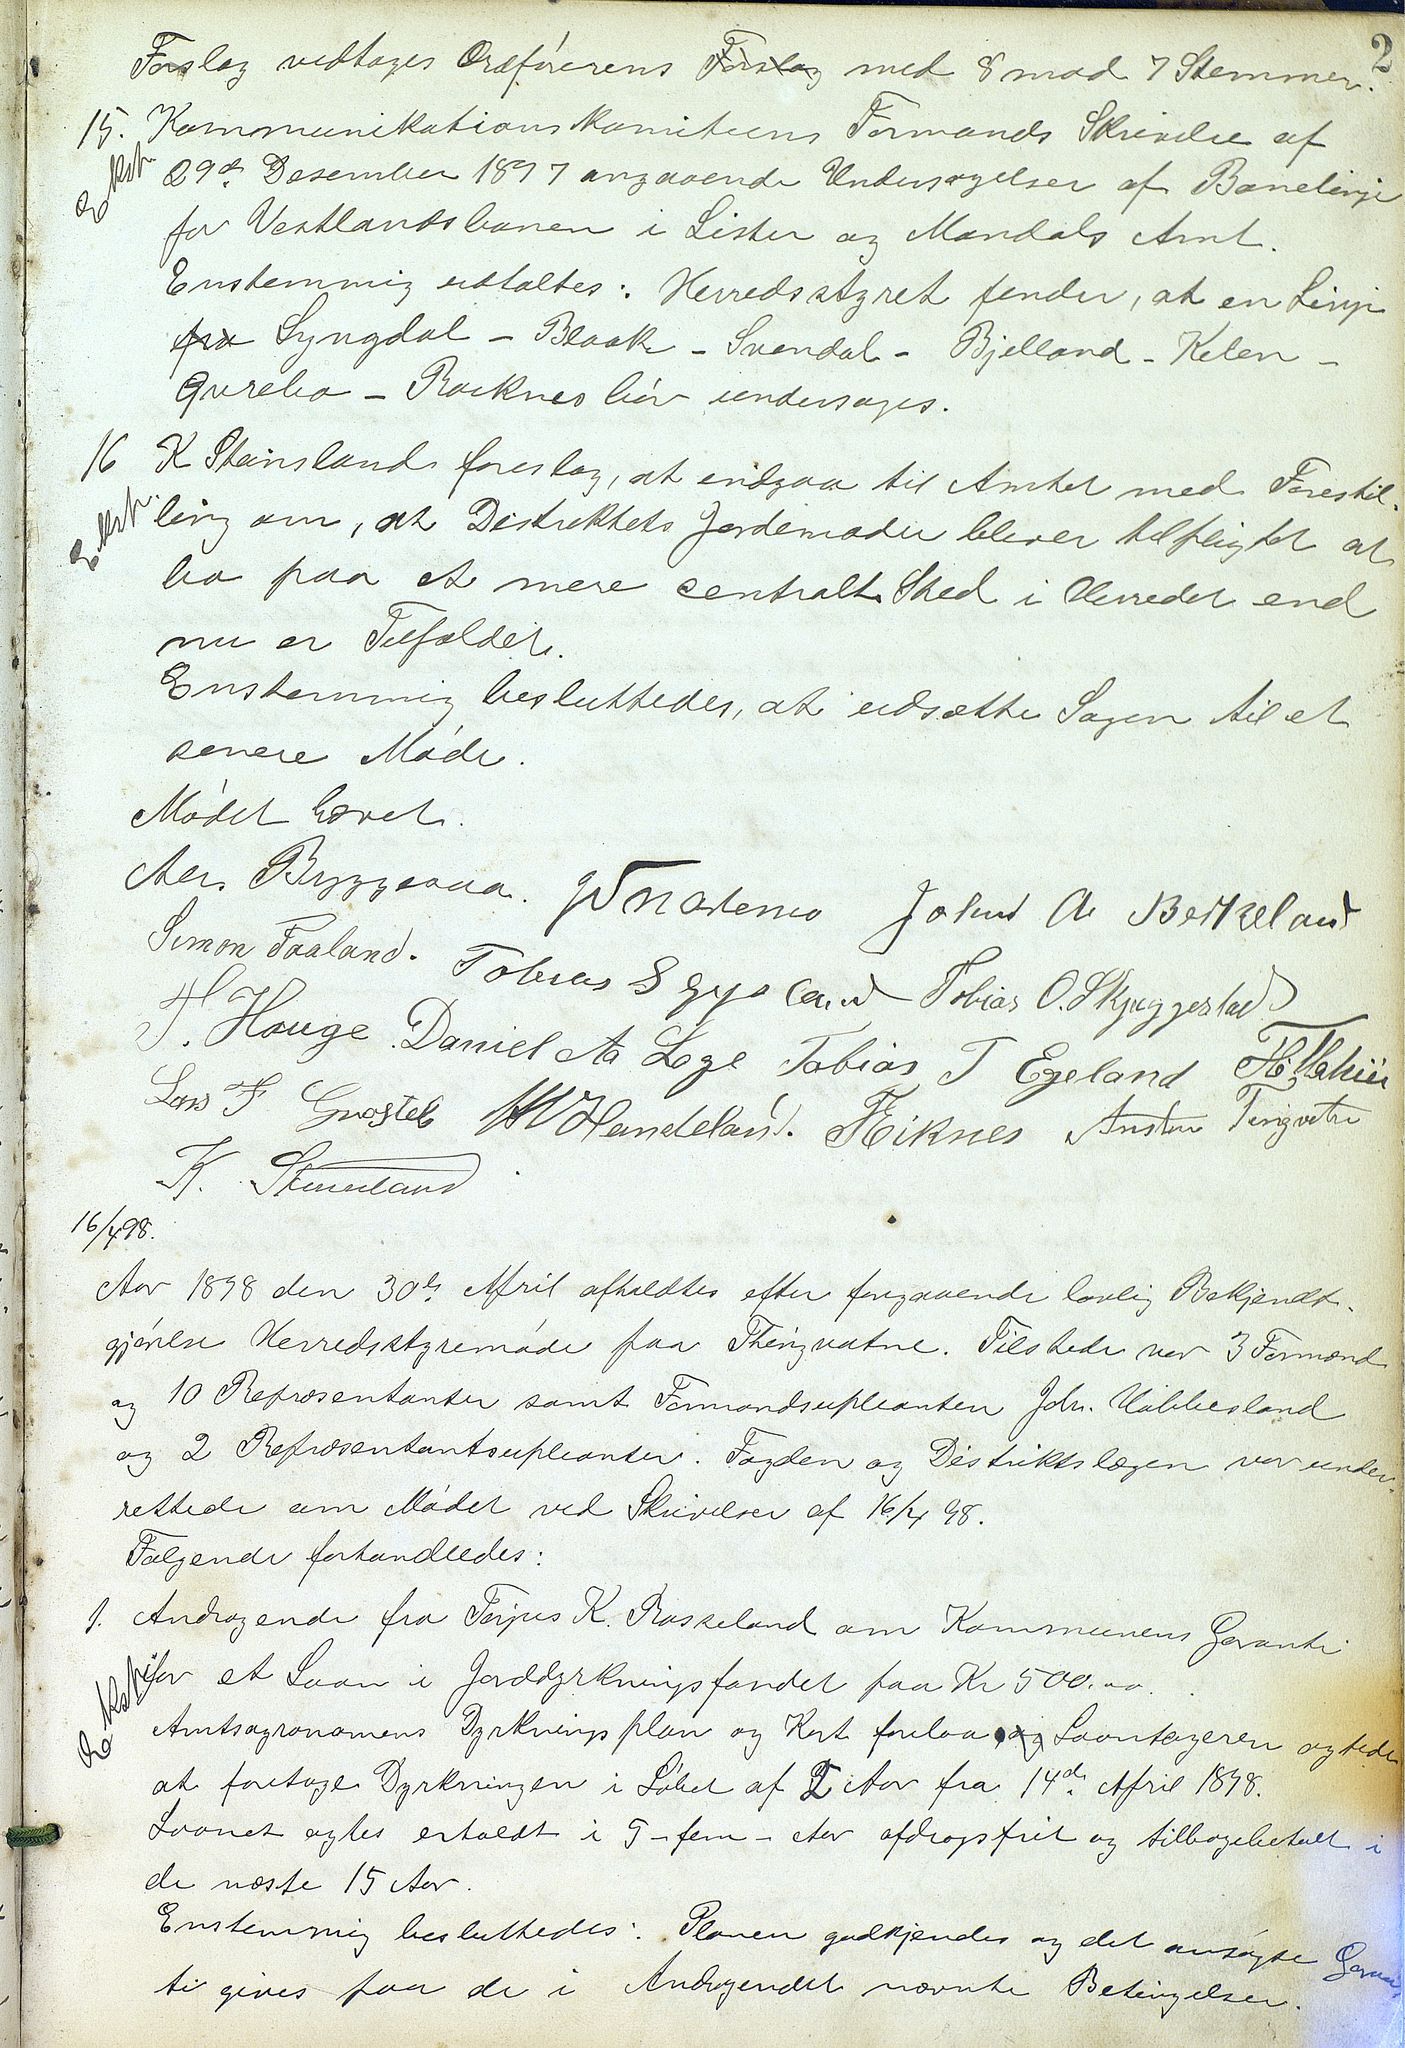 2
Forslag vedtages Ordførerens Forslag med 8 mod 7 Stemmer.
15. Kommunikationskomiteens Formands Skrivelse af
Ekst.
29de Desember 1897 angaaende Undersøgelser af Banelinje
for Vestlandsbanen i Lister og Mandals Amt.
Enstemmig udtaltes: Herredsstyret finder, at en Linje
fra Lyngdal - Blaak - Svendal - Bjelland - Kilen -
Øvrebø - Røiknes bør undersøges.
16 K Steinslands foreslag, at indgaa til Amtet med Forestil-
Ekst.
ling om, at Distriktets Jordemoder bliver tilpligtet at
bo paa et mere sentralt Sted i Herredet end
nu er Tilfældet.
Enstemmig besluttedes, at udsætte Sagen til et
senere Møde.
Mødet hævet.
Aen Bryggesaa. John A Birkeland
Simon Faaland. Tobias S Egeland Tobias O. Skjeggestad
T. Houge. Daniel Aa Løge Tobias T Egeland
Lars T Gnastel Handeland. Eiknes Ansten Tingvatn
K. Steinsland
16/4 98.
Aar 1898 den 30te April afholdtes efter foregaaende lovlig Bekjendt-
gjørelse Herredsstyremøde paa Thingvatne. Tilstede var 3 Formænd
og 10 Repræsentanter samt Formandsupleanten Joh. Haabbesland
og 2 Repræsentantsupleanter. Fogden og Distriktslægen var under-
rettede om Mødet ved Skrivelser af 16/4 98.
Følgende forhandledes:
1. Andragende fra Terjus K. Røskeland om Kommunens Garanti
for et Laan i Jorddyrkningsfondet paa Kr 500.00.
Ekst.
Amtsagronomens Dyrkningsplan og Kart forelaa, og Laantageren agtede
at foretage Dyrkningen i Løbet af 2 Aar fra 14de April 1898.
Laanet agtes erholdt i 5 - fem - Aar afdragsfrit og tilbagebetalt i
de næste 15 Aar.
Enstemmig besluttedes: Planen godkjendes og det ansøgte Garan-
ti gives paa de i Andragendet nævnte Betingelser.